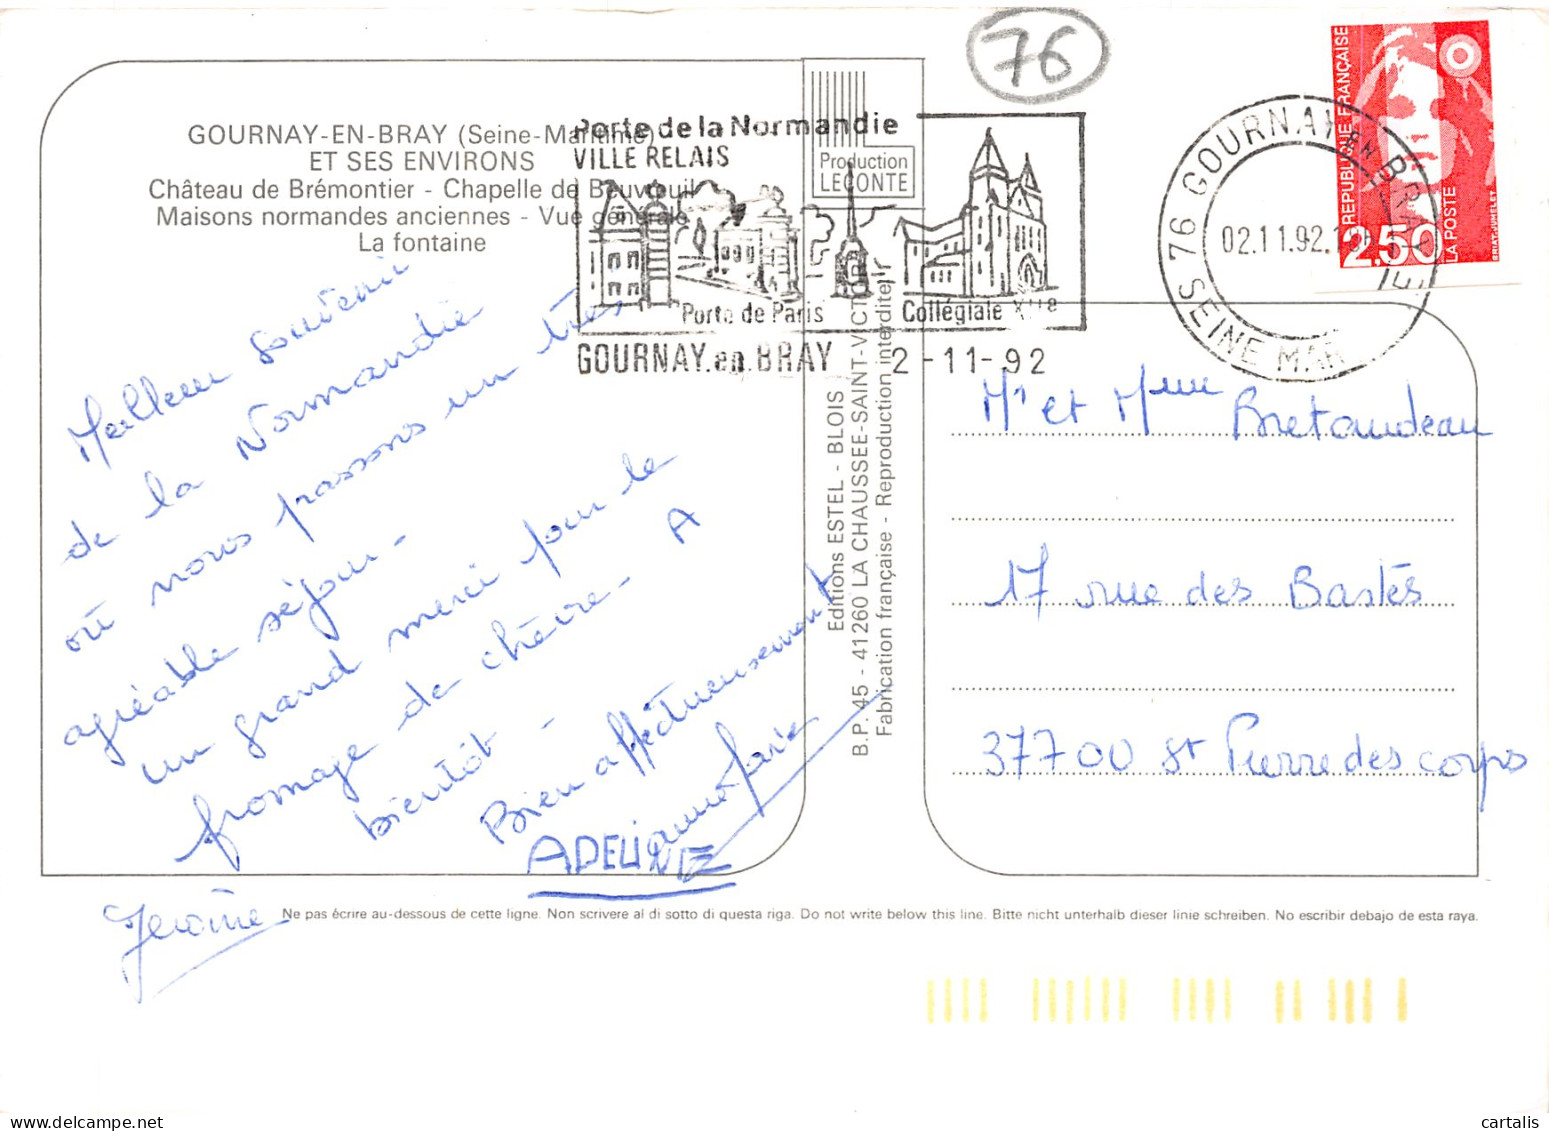 76
GOURNAY-EN-BRAY (Seine-Maritime)
ET SES ENVIRONS
Château de Brémontier - Chapelle de Beuvreuil
Maisons normandes anciennes - Vue générale
La fontaine
Production
LECONTE
Porte de la Normandie
VILLE RELAIS
Porte de Paris
Collégiale XIIe
GOURNAY.en.BRAY 2-11-92
76 GOURNAY EN BRAY
02.11.92.
SEINE MAR
REPUBLIQUE FRANÇAISE
2,50
LA POSTE
BRIAT-JUMELET
Meilleur souvenir
de la Normandie
où nous passons un très
agréable séjour -
un grand merci pour le
fromage de chèvre - A
bientôt -
Bien affectueusement
ADELINE
Jérôme
Editions ESTEL - BLOIS
B.P. 45 - 41260 LA CHAUSSEE-SAINT-VICTOR
Fabrication française - Reproduction interdite
Mr et Mme Bretaudeau
17 rue des Bastes
37700 St Pierre des corps
Ne pas écrire au-dessous de cette ligne. Non scrivere al di sotto di questa riga. Do not write below this line. Bitte nicht unterhalb dieser linie schreiben. No escribir debajo de esta raya.
cartalis